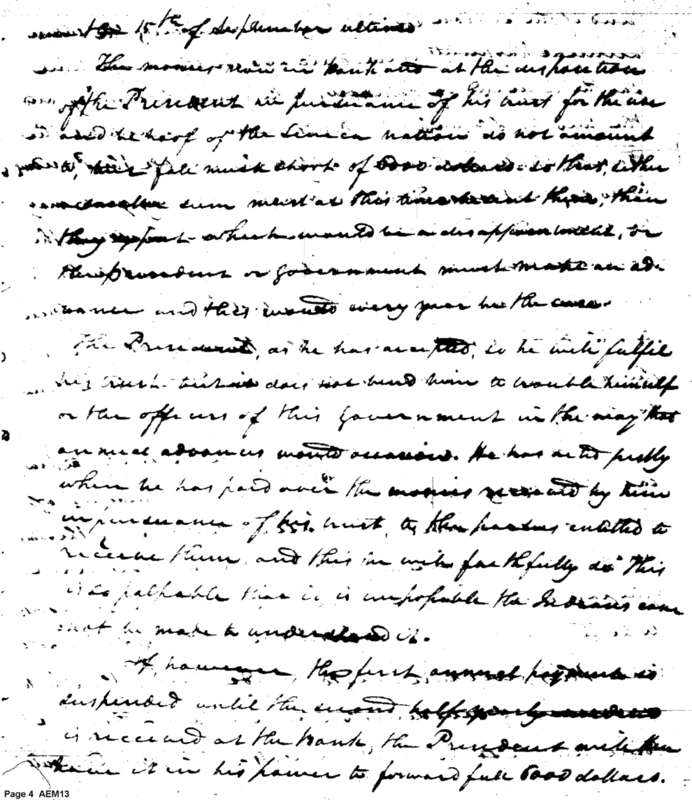 15th of September ultimo
The monies now in bank and at the disposition
of the President in pursuance of his trust for the use
and behoof of the Seneca nation do not amount
to, but fall much short of 6000 dollars. so that, either
sum must at this time be sent them, than
they expect which would be a disappointment, or
the president or Government must make an ad-
vance and this would every year be the case.
The President, as he has accepted, so he will fulfil
his trust but it does not bind him to trouble himself
or the officers of this Government in the way that
annual advances would occasion. He has acted justly
when he has paid over the monies received by him
in pursuance of his trust, to the parties entitled to
receive them, and this he will faithfully do. This
is so palpable that it is impossible the Indians can
not be made to understand it.
If however, the first annual payment is
suspended until the second half yearly dividend
is received at the bank, the President will then
have it in his power to forward full 6000 dollars.
Page 4 AEM13